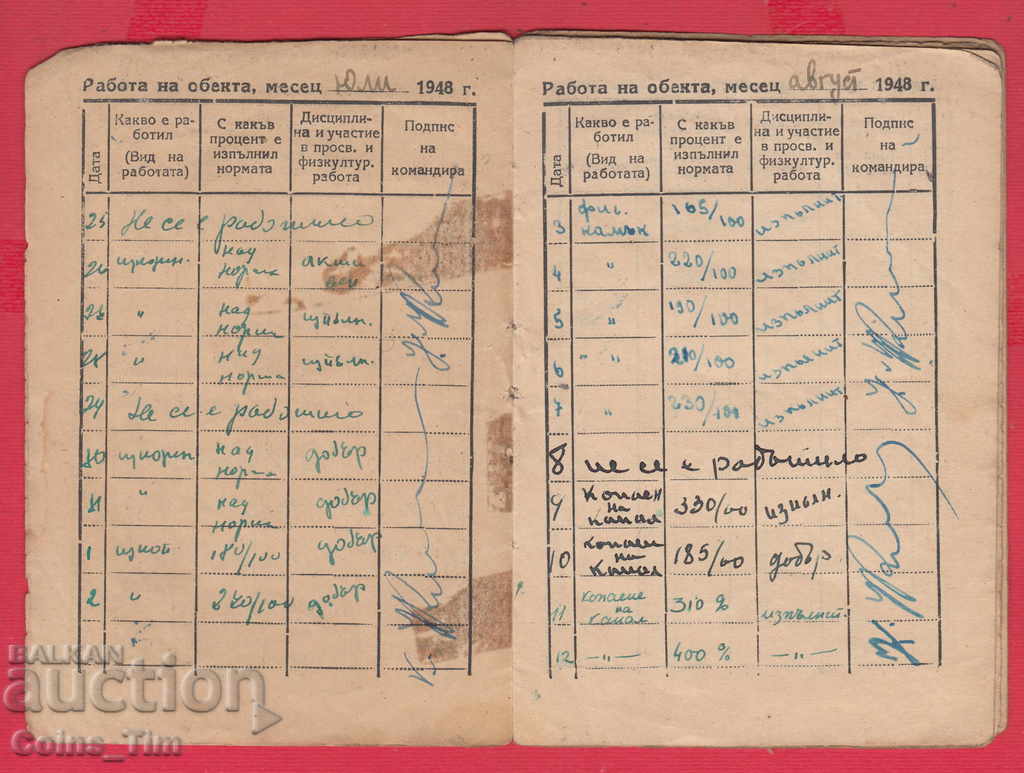 Работа на обекта, месец Юли 1948 г.
Дата
Какво е ра-
ботил
(Вид на
работата)
С какъв
процент е
изпълнил
нормата
Дисципли-
на и участие
в просв. и
физкултур.
работа
Подпис
на
командира
25 Не се е работило
над
норма
"
над
норма
изпълн.
"
над
норма
изпълн.
Не се е работило
30
над
норма
добър
31
"
над
норма
добър
1
изкоп
180/100
добър
2
"
240/100
добър
Работа на обекта, месец август 1948 г.
Дата
Какво е ра-
ботил
(Вид на
работата)
С какъв
процент е
изпълнил
нормата
Дисципли-
на и участие
в просв. и
физкултур.
работа
Подпис
на
командира
3
камък
165/100
4
"
220/100
5
"
190/100
6
" "
210/100
7
"
230/100
8 не се е работило
9
Копаен
на
канал
330/00
изпълн.
10
Копаен
на
канал
185/00
добър
11
Копаене
на
канал
310 %
изпълнит.
12
—„—
400 %
—„—
BALKAN
auction
Coins_Tim